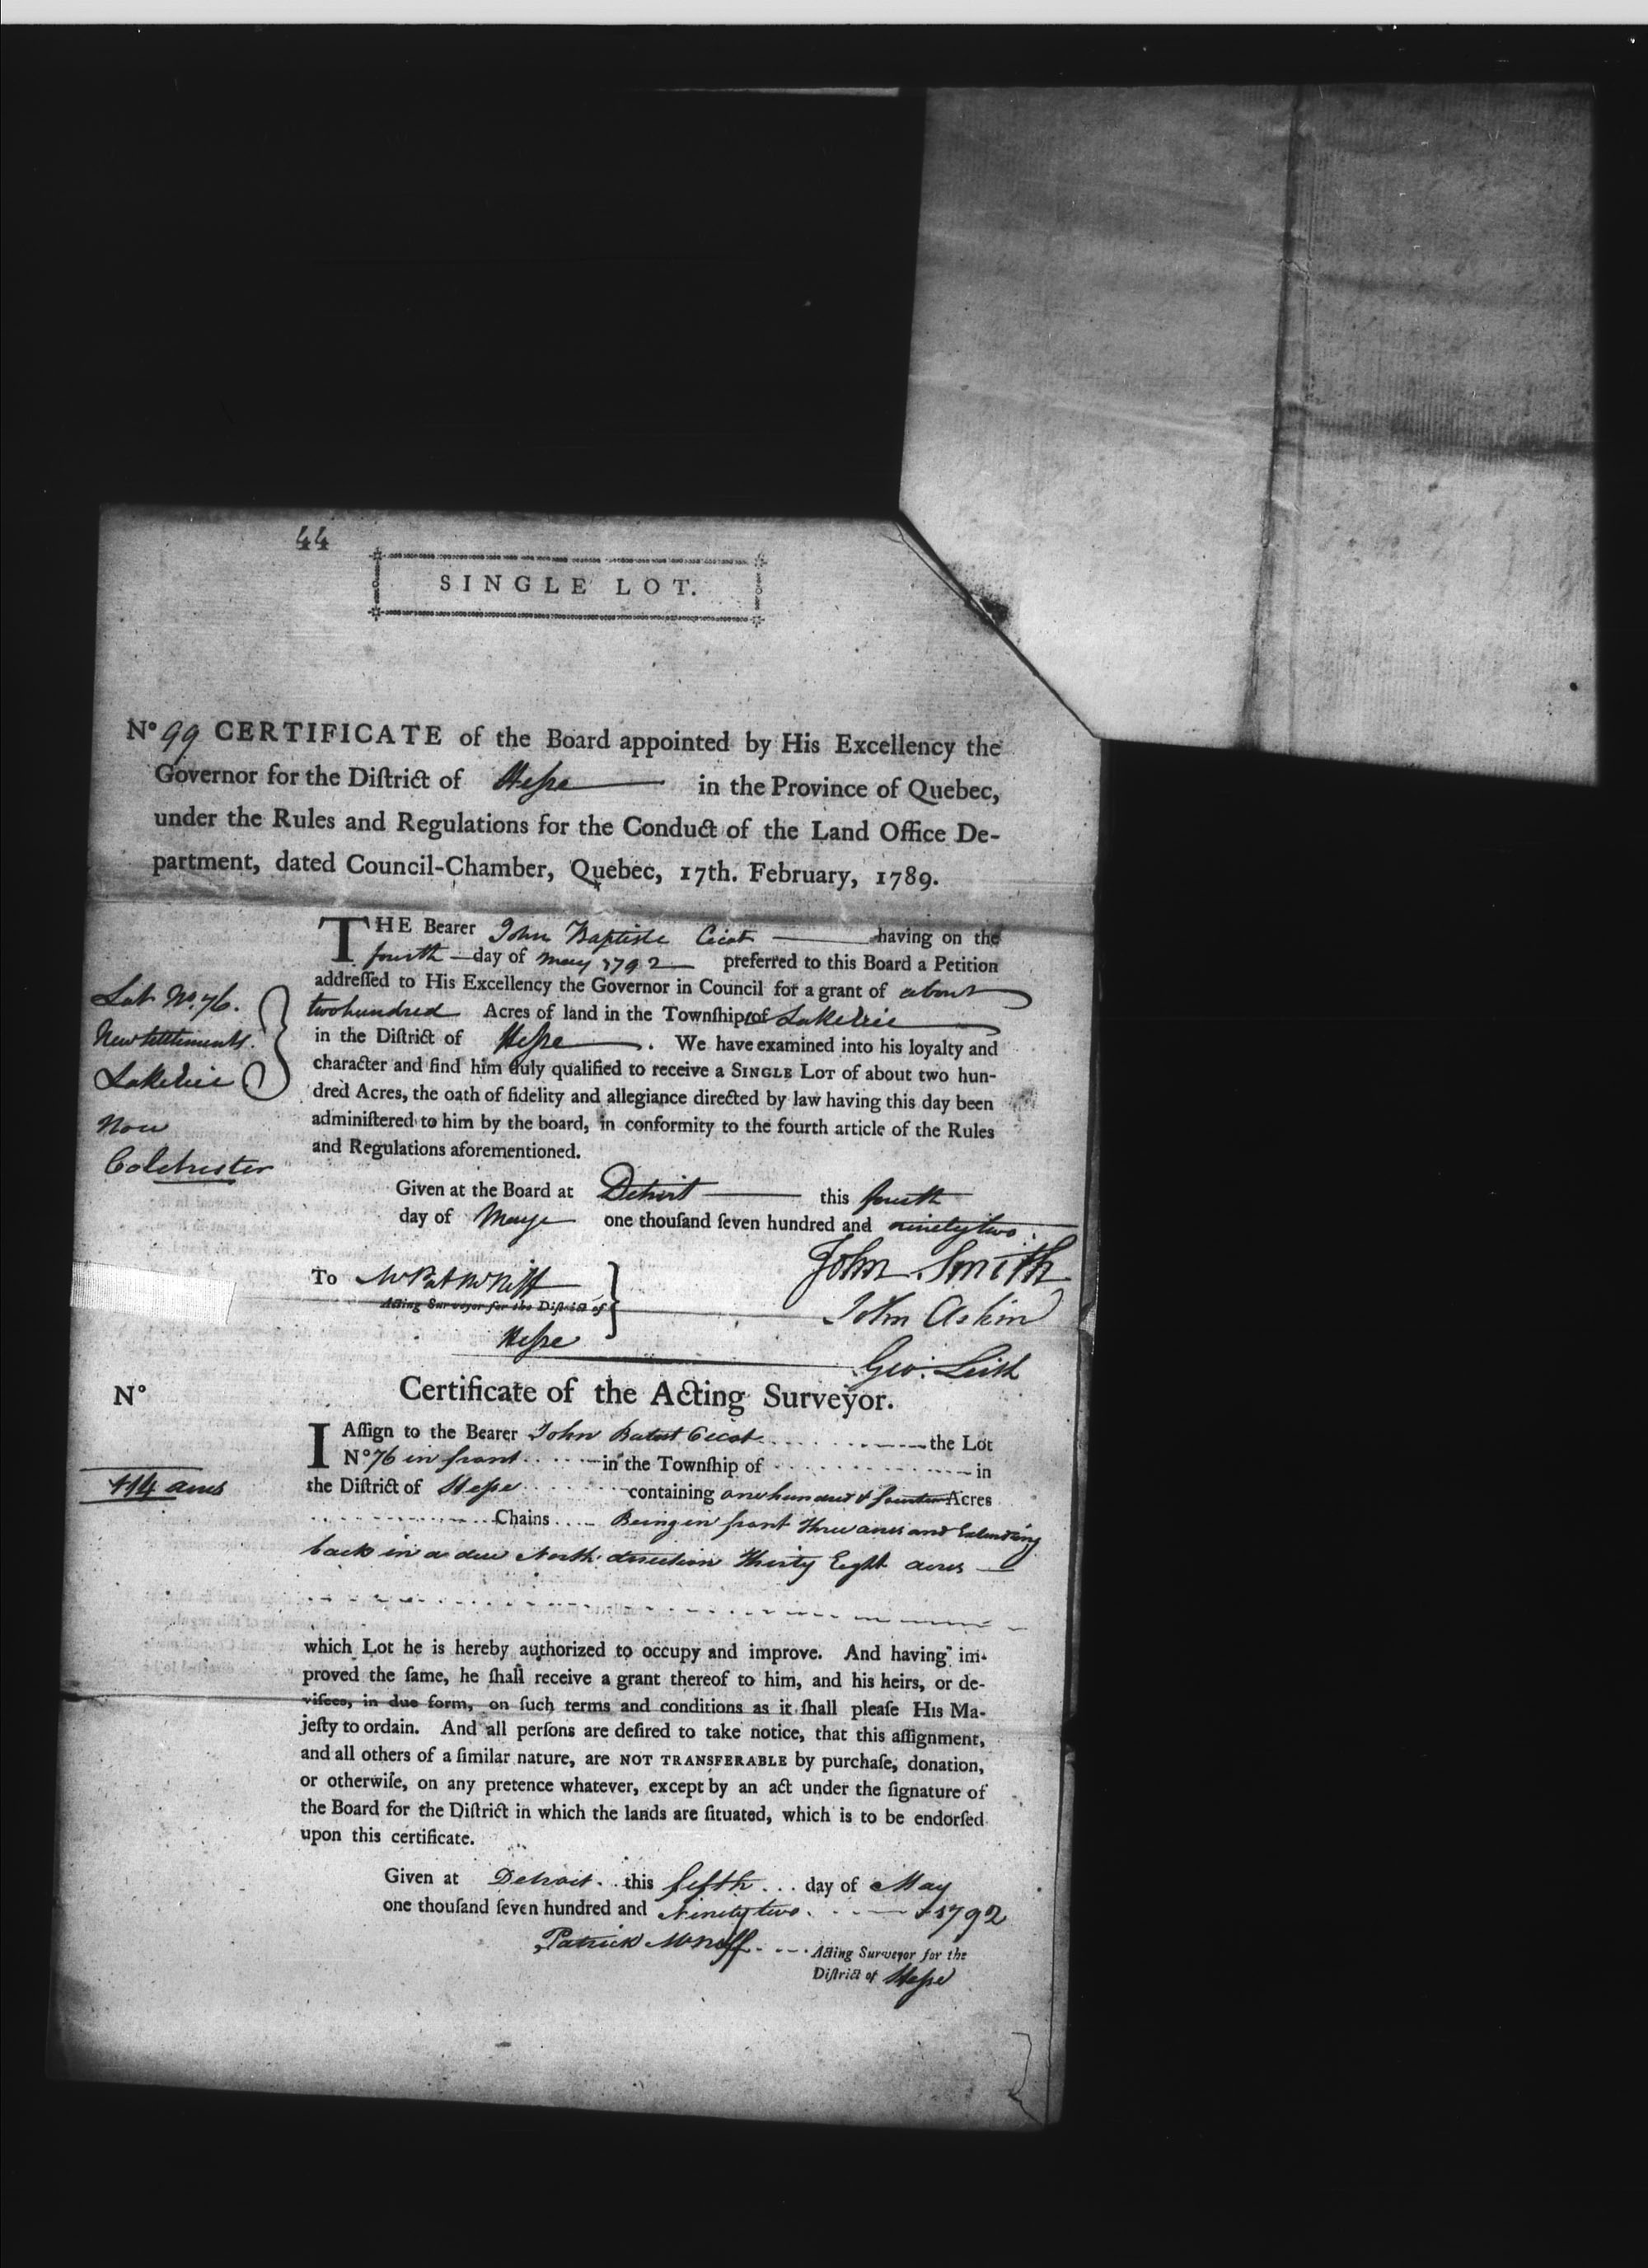 44
SINGLE LOT.
No 99 CERTIFICATE of the Board appointed by His Excellency the
Governor for the Diſtrict of Heſse in the Province of Quebec,
under the Rules and Regulations for the Conduct of the Land Office De-
partment, dated Council-Chamber, Quebec, 17th. February, 1789.
THE Bearer John Baptiste Cicot having on the
fourth day of may 1792 preferred to this Board a Petition
addreſſed to His Excellency the Governor in Council for a grant of about
two hundred Acres of land in the Townſhip of Lake Erie
in the Diſtrict of Heſse. We have examined into his loyalty and
character and find him duly qualified to receive a SINGLE LOT of about two hun-
dred Acres, the oath of fidelity and allegiance directed by law having this day been
adminiſtered to him by the board, in conformity to the fourth article of the Rules
and Regulations aforementioned.
Lot No. 76.
New settlements
Lake Erie
Now
Colchester
Given at the Board at Detroit this fourth
day of Maye one thouſand ſeven hundred and ninety two.
John Smith
To Mr Pat McNiff
Acting Surveyor for the Diſtrict of
John Askin
Heſse
Geo. Leith
No
Certificate of the Acting Surveyor.
I Aſſign to the Bearer John Batist Cicot the Lot
No 76 in front in the Townſhip of in
114 acres
the Diſtrict of Heſse containing one hundred & fourteen Acres
Chains Being in front three acres and Extending
back in a due North direction Thirty Eight acres
which Lot he is hereby authorized to occupy and improve. And having im-
proved the ſame, he ſhall receive a grant thereof to him, and his heirs, or de-
viſees, in due form, on ſuch terms and conditions as it ſhall pleaſe HIS MA-
jeſty to ordain. And all perſons are deſired to take notice, that this aſſignment,
and all others of a ſimilar nature, are NOT TRANSFERABLE by purchaſe, donation,
or otherwiſe, on any pretence whatever, except by an act under the ſignature of
the Board for the Diſtrict in which the lands are ſituated, which is to be endorſed
upon this certificate.
Given at Detroit this fifth day of May
one thouſand ſeven hundred and Ninety two 1792
Patrick McNiff Acting Surveyor for the
Diſtrict of Heſse